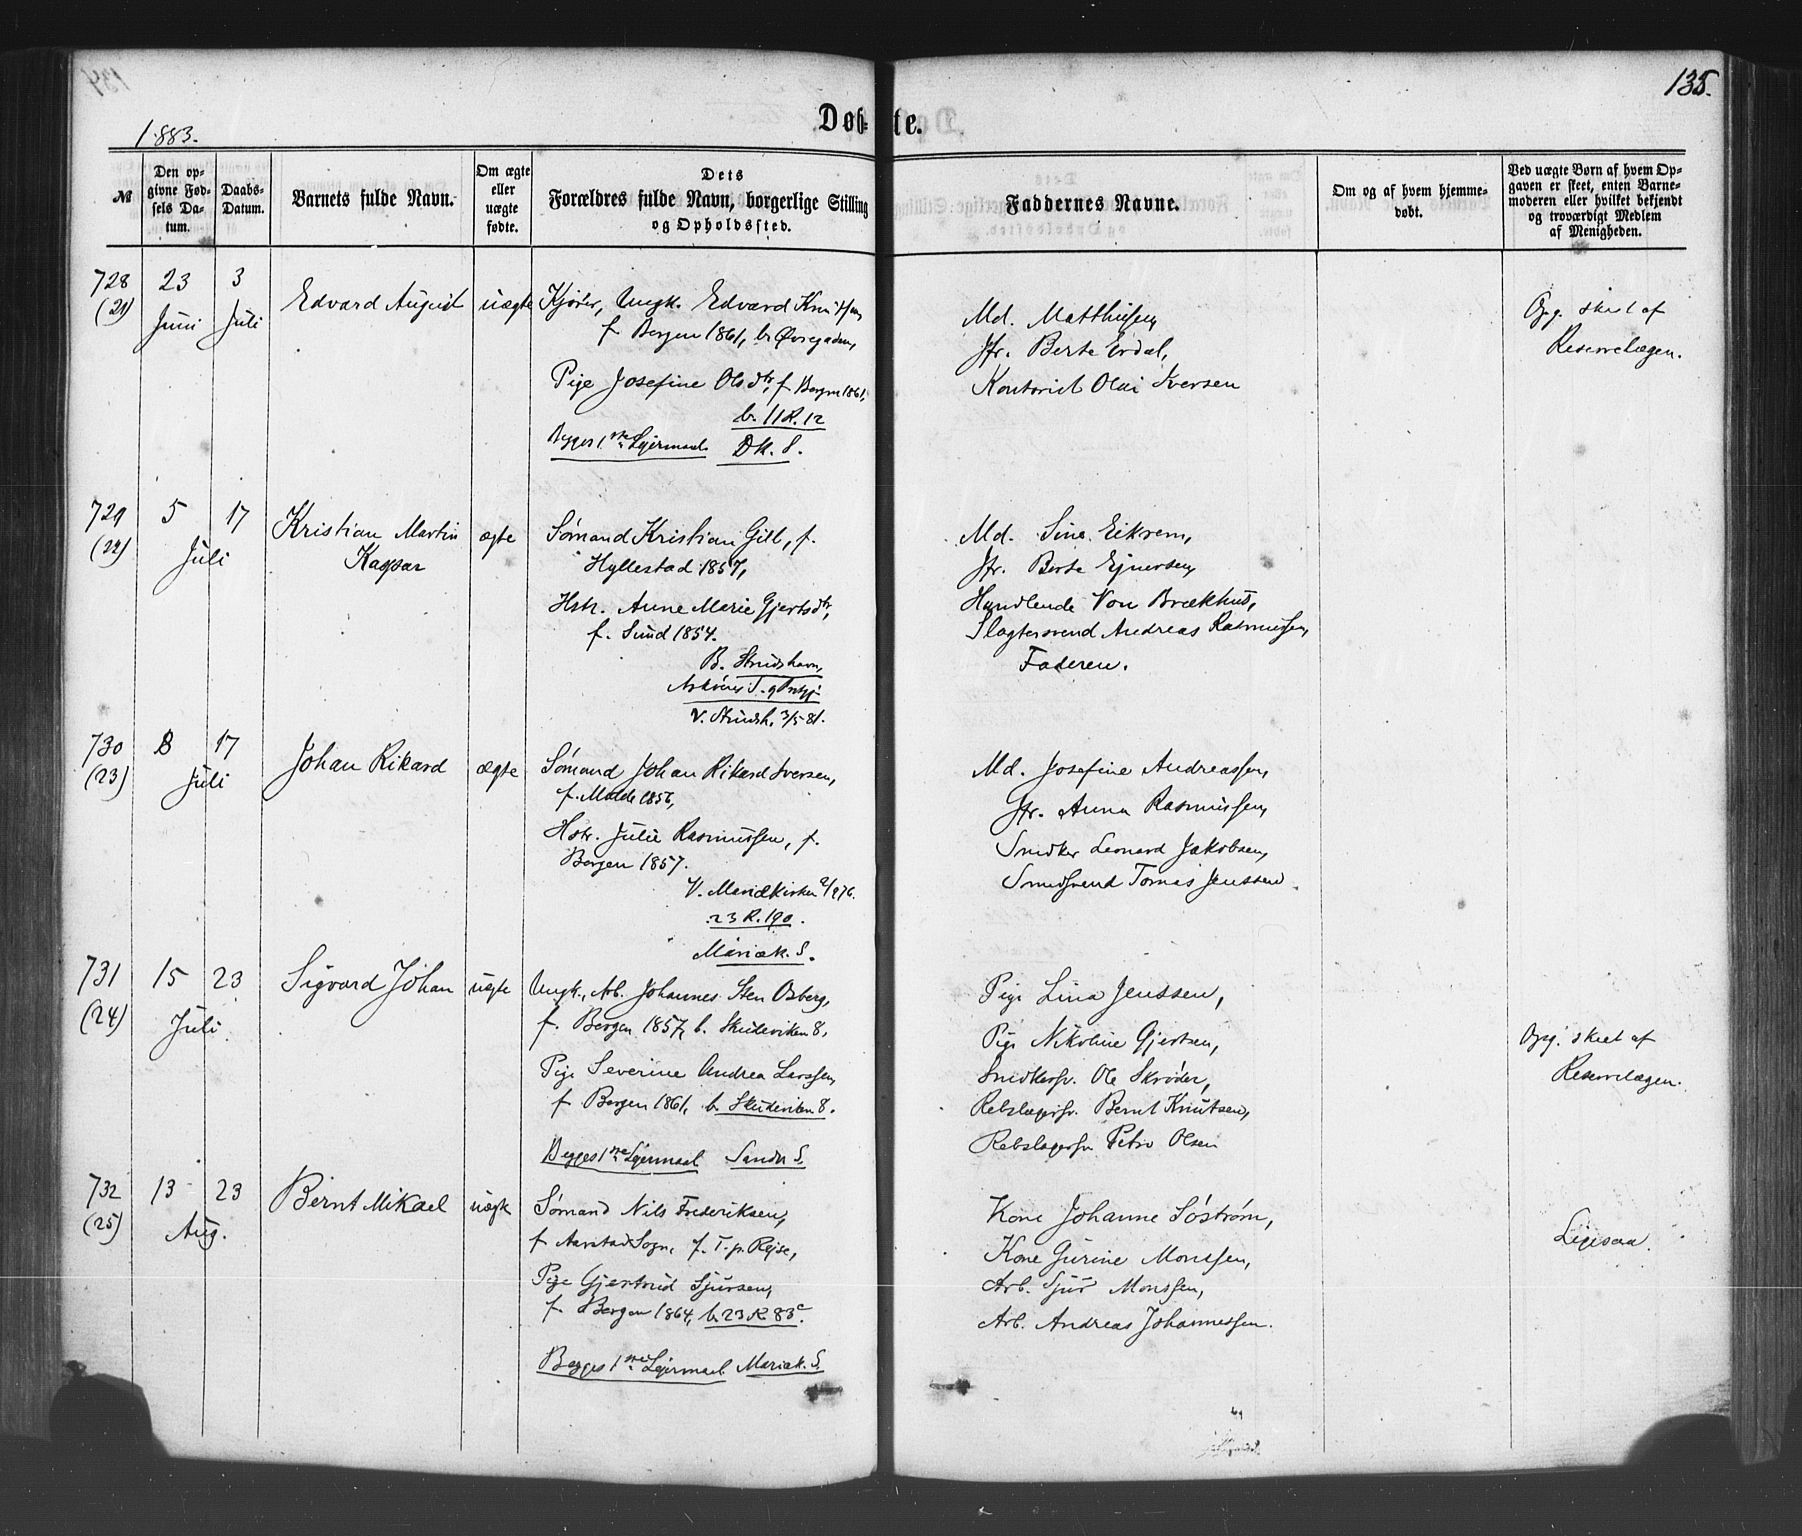 135.
Døbte.
1883.
№
Den opgivne Fødsels Datum.
Daabs-Datum.
Barnets fulde Navn.
Om ægte eller uægte fødte.
Dets Forældres fulde Navn, borgerlige Stilling og Opholdssted.
Faddernes Navne.
Om og af hvem hjemmedøbt.
Ved uægte Børn af hvem Opgaven er skeet, enten Barnemoderen eller hvilket bekjendt og troværdigt Medlem af Menigheden.
728 (21)
23 Juni
3 Juli
Edvard August
uægte
Kjører, Ungk. Edvard Knutsen,
f. Bergen 1861, b. Øvregaden,
Pige Josefine Olsdtr, f. Bergen 1861,
b. 11 R. 12
Begges 1ste Lejermaal. DK. S.
Md. Matthiesen,
Jfr. Berte Erdal,
Kontorist Olai Iversen
Opg. skeet af
Reservelægen.
729 (22)
5 17
Juli
Kristian Martin
Kaspar
ægte
Sømand Kristian Gill, f.
Hyllestad 1857,
Hstr. Anne Marie Gjertsdtr,
f. Sund 1854.
B. Strudshavn,
Askøens S. og Prstgj
V. Strudsh. 3/5 81.
Md. Sine Eikrem,
Jfr. Berte Ejnersen,
Handlende Von Brækhus,
Slagtersvend Andreas Rasmussen,
Faderen.
730 (23)
8 17
Juli
Johan Rikard
ægte
Sømand Johan Rikard Iversen,
f. Molde 1856,
Hstr. Julie Rasmussen, f.
Bergen 1857.
V. Mariækirken 2/9 76.
23 R. 190.
Mariæk. S.
Md. Josefine Andreassen,
Jfr. Anna Rasmussen,
Snidker Leonard Jakobsen,
Smedsvend Tomas Jenssen.
731 (24)
15 23
Juli.
Sigvard Johan
uægte
Ungk., Arb. Johannes Sten Osberg,
f. Bergen 1857, b. Skuteviken 8,
Pige Severine Andrea Larssen,
f. Bergen 1861, b. Skuteviken 8.
Begges 1ste Lejermaal Sandv. S.
Pige Lina Jenssen,
Pige Nikoline Gjertsen,
Snidkersv. Ole Skrøder,
Rebslagersv. Bernt Knutsen,
Rebslagersv. Petro Olsen
Opg. skeet af
Reservelægen.
732 (25)
13 23
Aug.
Bernt Mikael
uægte
Sømand Nils Frederiksen,
f. Aarstad Sogn, f. T. p. Rejse,
Pige Gjertrud Sjursen,
f. Bergen 1864, b. 23 R. 83c.
Begges 1ste Lejermaal Mariæk. S.
Kone Johanne Søstrøm,
Kone Gurine Monssen,
Arb. Sjur Monssen,
Arb. Andreas Johannessen.
Ligesaa.